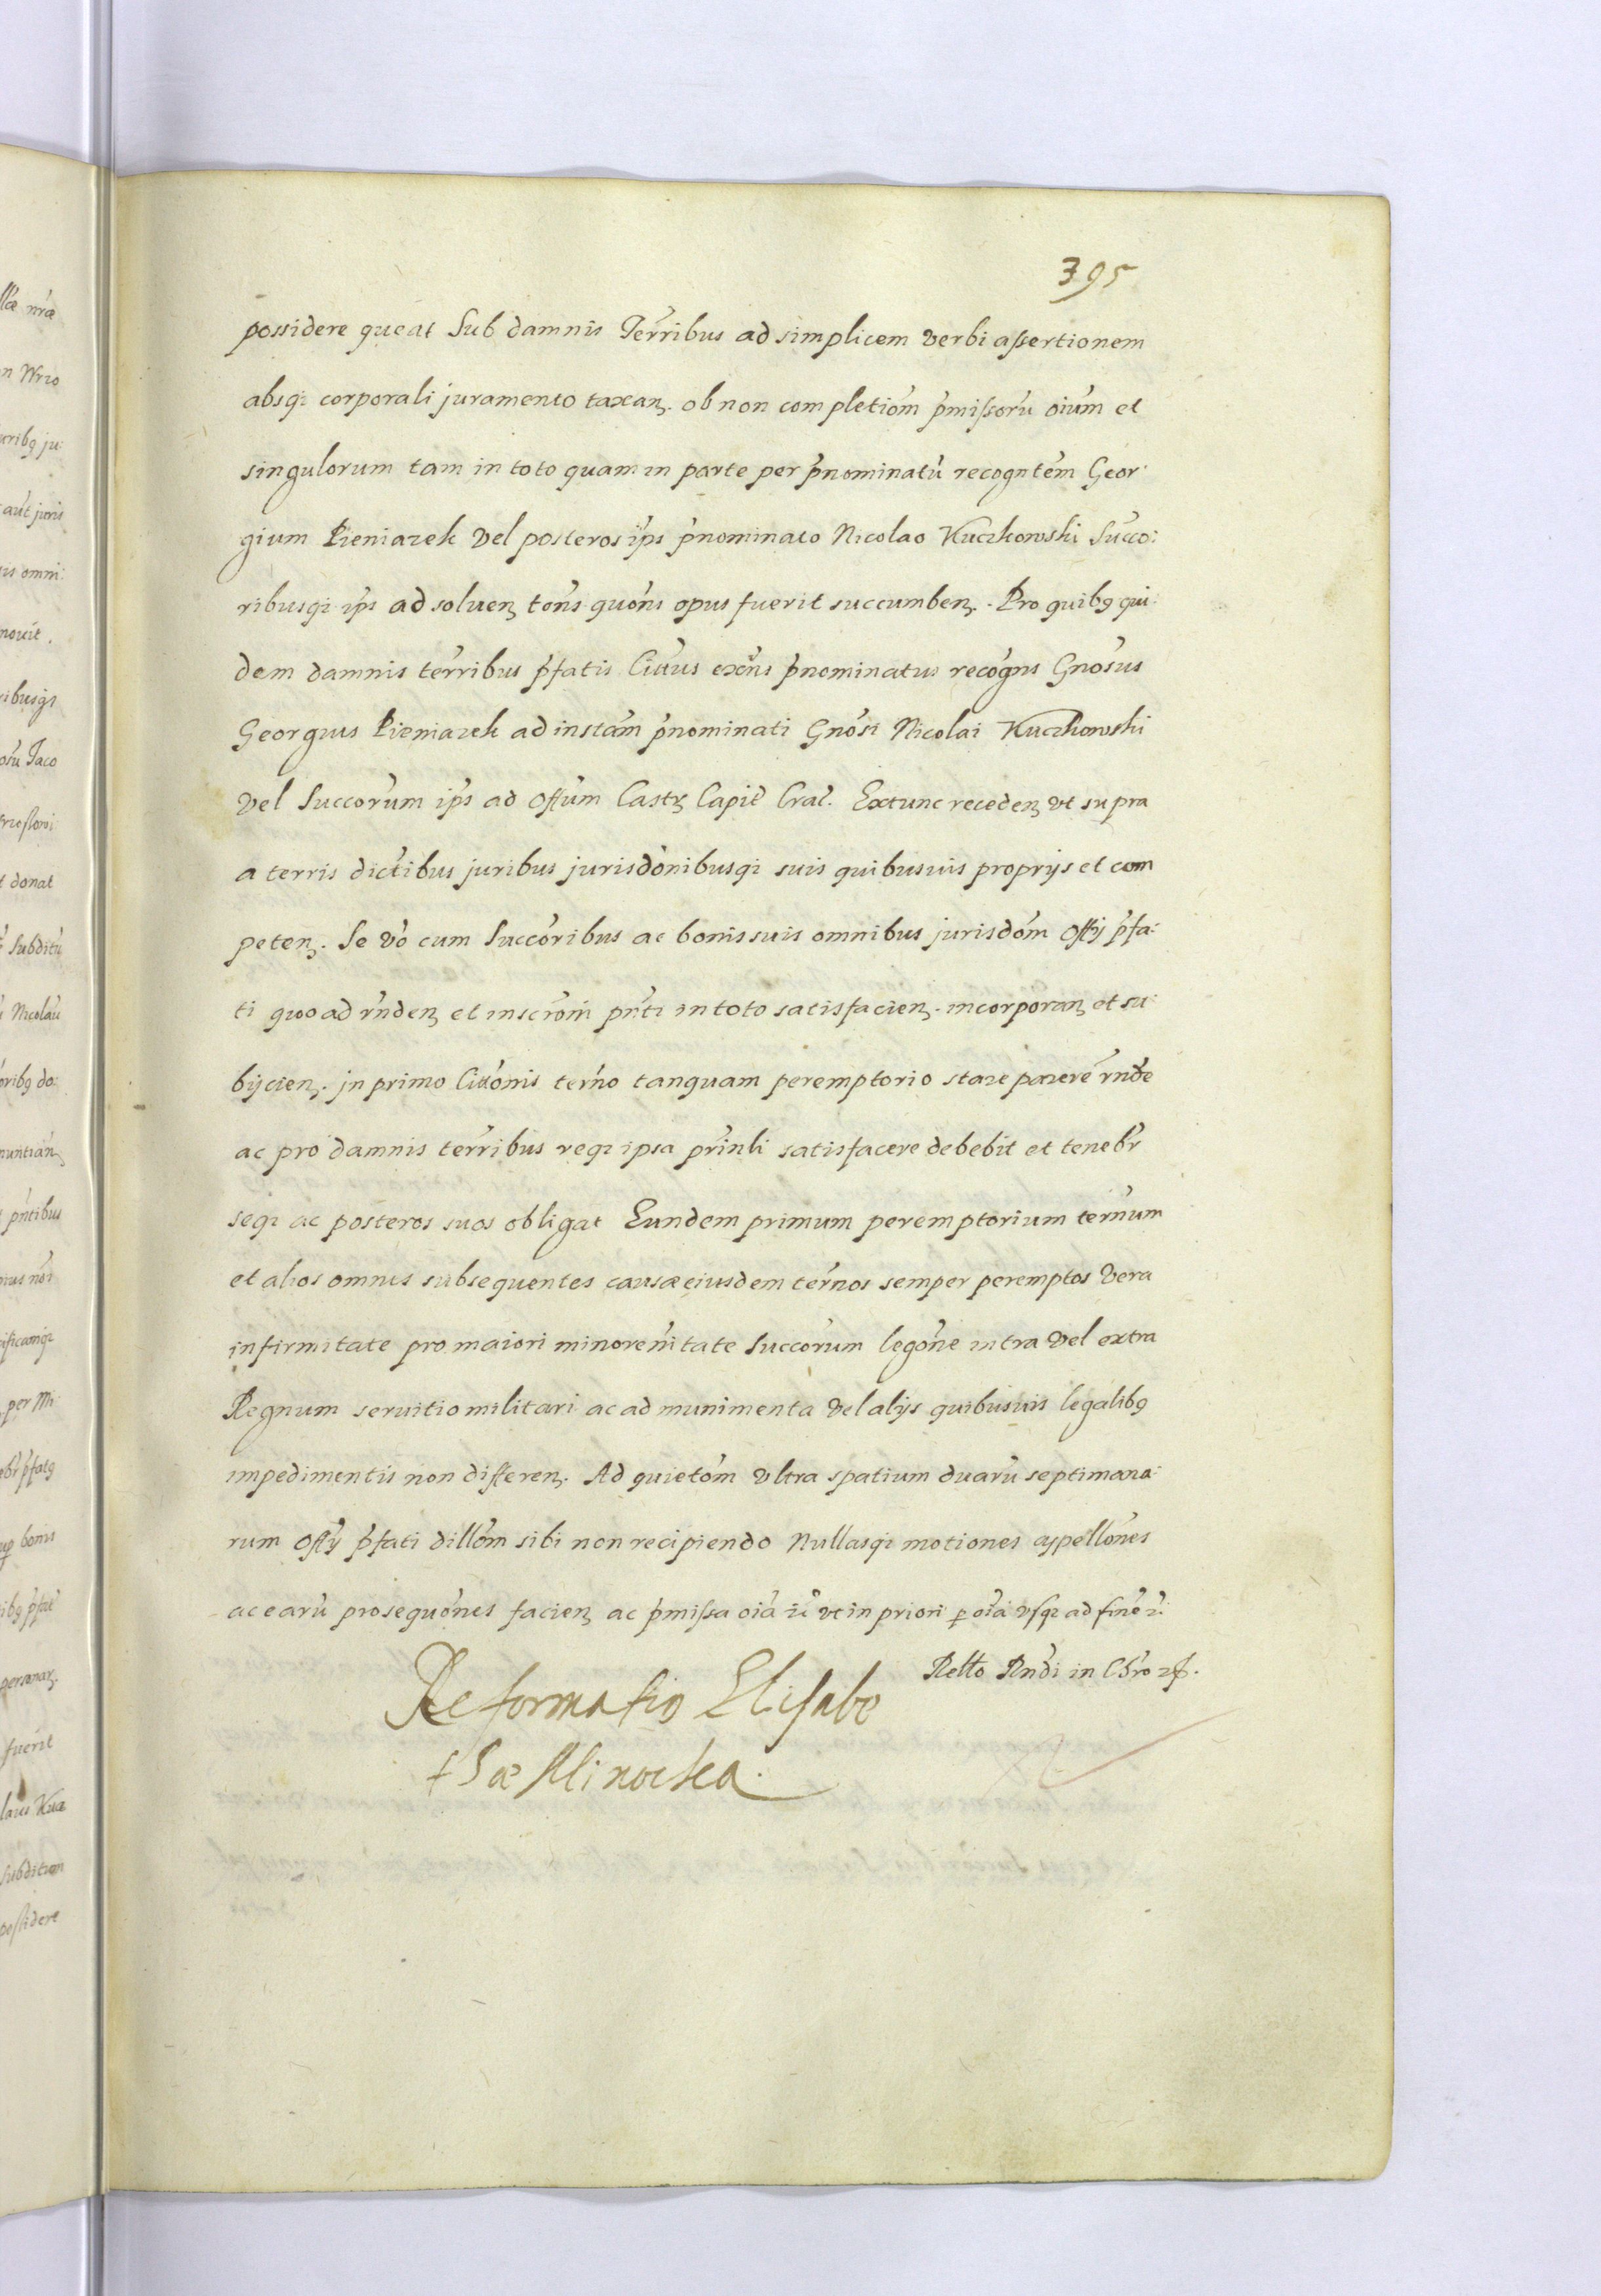 395
possidere queat Sub damnis Terribus ad simplicem verbi assertionem
absqз corporali juramento taxanз. ob non completiom pmissoru oium et
singulorum tam in toto quam in parte per pnominatu recogntem Geor:
gium Pieniazek vel posteros ips pnominato Nicolao Kuczkowski Succo:
ribusqз ips ad soluenз tons quons opus fuerit succumbenз. Pro quibꝯ qui:
dem damnis terribus pfatis Citus exens pnominatus recogns Gnosus
Georgius Pieniazek ad instam pnominati Gnosi Nicolai Kuczkowski
vel Succorum ips ad Offum Castз Capit Crac. Extunc recedenз ut supra
a terris dictibus juribus jurisdonibusqз suis quibusuis proprijs et com
petenз. Se vo cum Succoribus ac bonis suis omnibus jurisdom Offij pfa:
ti quo ad rndenз et inscrom pnti in toto satisfacienз. incorporanз et su:
bijcienз. jn primo Citonis terno tanquam peremptorio stare parere rnde
ac pro damnis terribus reqз ipsa prinli satisfacere debebit et tenebr
seqз ac posteros suos obligat Eundem primum peremptorium ternum
et alios omnes subsequentes causae eiusdem ternos semper peremptos vera
infirmitate pro maiori minorenitate Succorum legone intra vel extra
Regnum seruitio militari ac ad munimenta vel alijs quibusuis legalibꝯ
impedimentis non differenз. Ad quietom vltra spatium duaru septimana:
rum Offij pfati dillom sibi non recipiendo Nullasqз motiones appellones
ac earu prosequones facienз ac pmissa oia ut in priori ꝑ oia usqз ad fine
Retto Rndi in Chro
Reformatio Elisabe
thae Minocka.